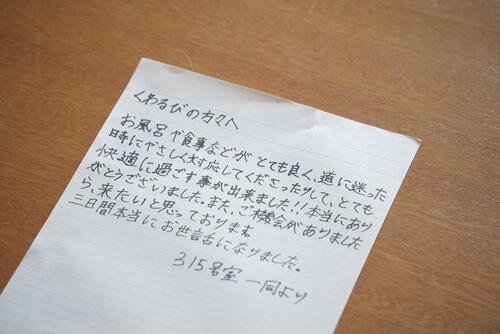 くわるびの方々へ
お風呂や食事などが とても良く、道に迷った
時にやさしく対応してくださったりして、とても
快適に過ごす事が出来ました!!本当にあり
がとうございました。また、ご機会がありました
ら、来たいと思っております。
三日間本当にお世話になりました。
315号室 一同より